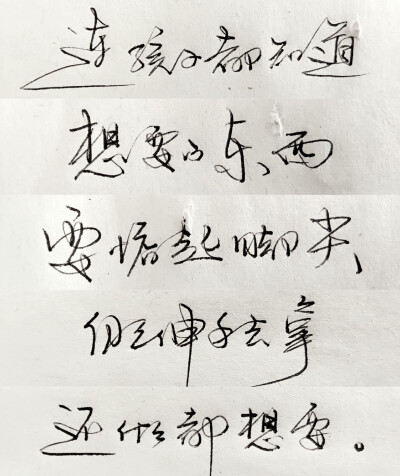 连孩子都知道
想要的东西
要踮起脚尖
自己伸手去拿
还什么都想要。